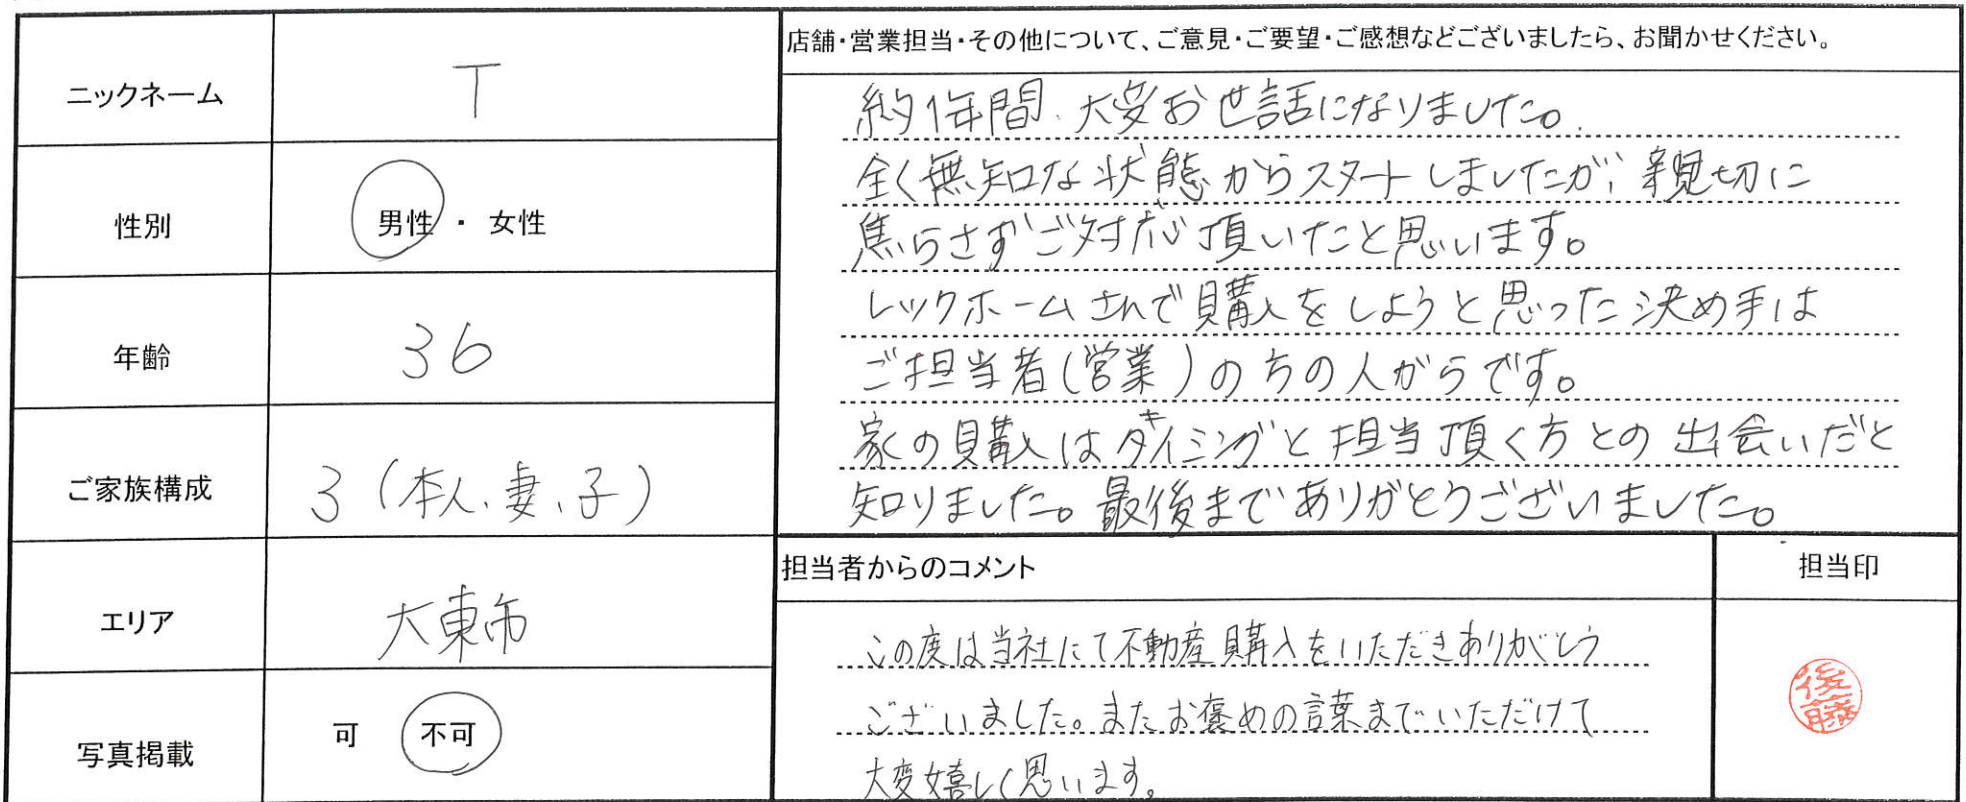 ニックネーム
T
性別
男性 ・ 女性
年齢
36
ご家族構成
3 (本人、妻、子)
エリア
大東市
写真掲載
可 不可
店舗・営業担当・その他について、ご意見・ご要望・ご感想などございましたら、お聞かせください。
約1年間、大変お世話になりました。
全く無知な状態からスタートしましたが、親切に
焦らさずご対応頂いたと思います。
レックホームさんで購入をしようと思った決め手は
ご担当者(営業)の方の人がらです。
家の購入はタイミングと担当頂く方との出会いだと
知りました。最後までありがとうございました。
担当者からのコメント
この度は当社にて不動産購入をいただきありがとう
ございました。またお褒めの言葉までいただけて
大変嬉しく思います。
担当印
後藤